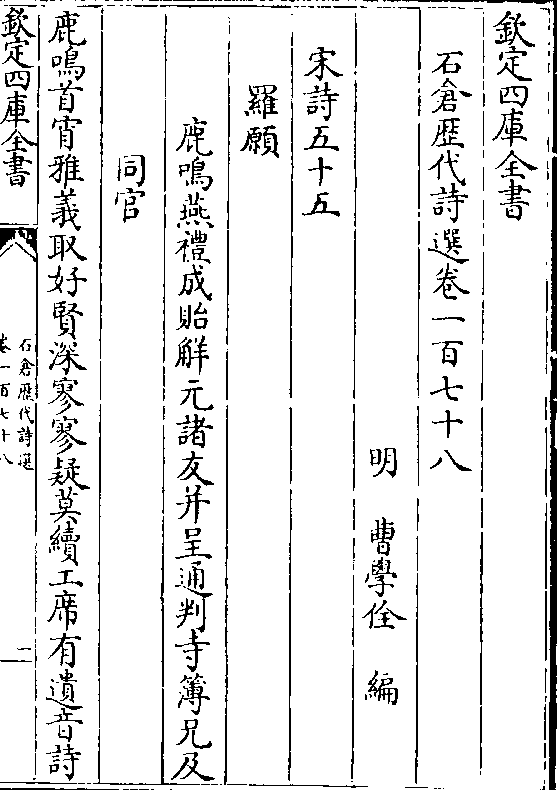 欽定四庫全書
石倉歷代詩選卷一百七十八
明 曹學佺 編
宋詩五十五
羅願
鹿鳴燕禮成貽解元諸友并呈通判寺簿兄及
同官
鹿鳴首宵雅義取好賢深寥寥疑莫續工席有遺音詩
欽定四庫全書
石倉歷代詩選
卷一百七十八
二